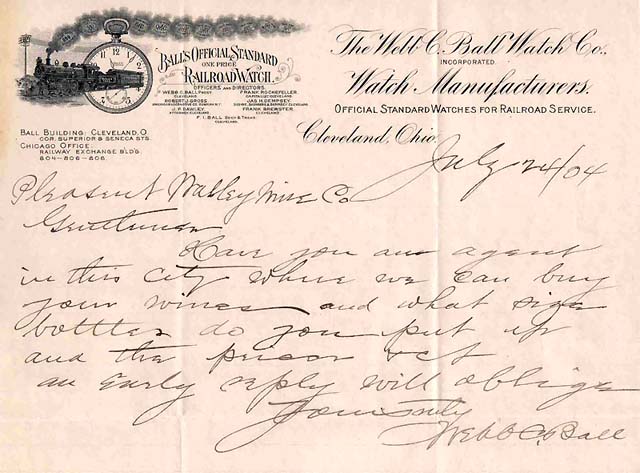 BALL'S OFFICIAL STANDARD
ONE PRICE
RAILROAD WATCH.
OFFICERS AND DIRECTORS.
WEBB C. BALL, PREST.
CLEVELAND
ROBERT J. GROSS
J. F. DAWLEY
FRANK ROCKEFELLER
JAS. H. DEMPSEY
FRANK BREWSTER,
CLEVELAND
F. I. BALL SECY & TREAS.
CLEVELAND.
BALL BUILDING: CLEVELAND, O.
COR. SUPERIOR & SENECA STS.
CHICAGO OFFICE:
RAILWAY EXCHANGE B'LD'G.
804-806-808.
The Webb C. Ball Watch Co.
INCORPORATED.
Watch Manufacturers.
OFFICIAL STANDARD WATCHES FOR RAILROAD SERVICE.
Cleveland, Ohio.
July 24/04
Pleasent Valley Wine Co
Gentlemen
Have you an agent
in this city where we can buy
your wines and what size
bottles do you put up
and the prices &ct
an Early reply will oblige
Yours truly
Webb C. Ball